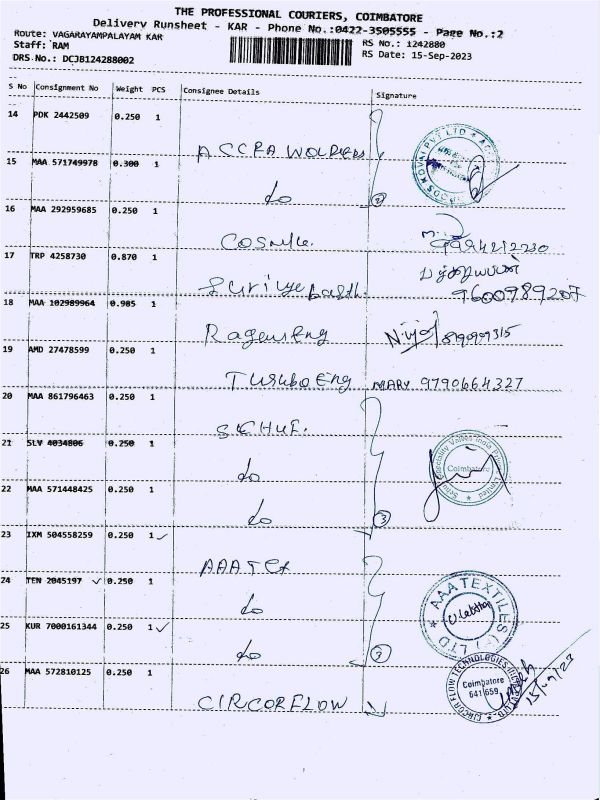 THE PROFESSIONAL COURIERS, COIMBATORE
Delivery Runsheet - KAR - Phone No.:0422-3505555 - Page No.:2
Route: VAGARAYAMPALAYAM KAR
RS No.: 1242880
Staff: RAM
RS Date: 15-Sep-2023
DRS No.: DCJB124288002
S No Consignment No Weight PCS Consignee Details Signature
14 PDK 2442509 0.250 1
ACCRA WOLDERS
15 MAA 571749978 0.300 1
do
2
16 MAA 292959685 0.250 1
9994212230
17 TRP 4258730 0.870 1
9600989207
18 MAA 102989964 0.905 1
19 AMD 27478599 0.250 1
Turubo Eng MARY 9790664327
20 MAA 861796463 0.250 1
21 SLV 4034806 0.250 1
do
Coimbatore
22 MAA 571448425 0.250 1
do
3
23 IXM 504558259 0.250 1 ✓
AAA Tex
24 TEN 2045197 ✓ 0.250 1
do
AAA TEXTILES (P) LTD
25 KUR 7000161344 0.250 1 ✓
do
26 MAA 572810125 0.250 1
CIRCORFLOW
CIRCOR FLOW TECHNOLOGIES
Coimbatore
641 659
15/09/23